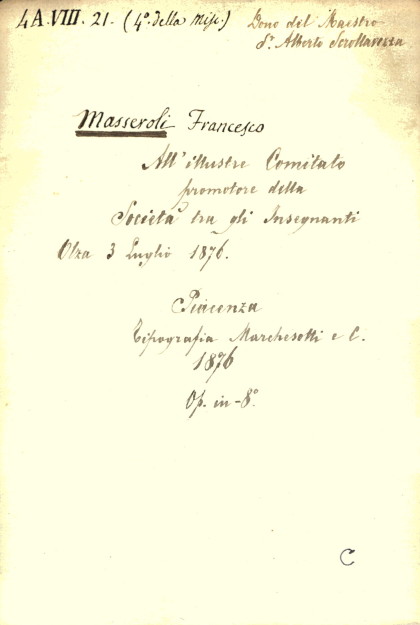 4A.VIII. 21. (4º. della Misc.)
Dono del Maestro
Dr. Alberto Scrollavezza
Masseroli Francesco
All'illustre Comitato
promotore della
Società tra gli Insegnanti
Olza 3 Luglio 1876.
Piacenza
Tipografia Marchesotti e C.
1876
Op. in-8º.
C